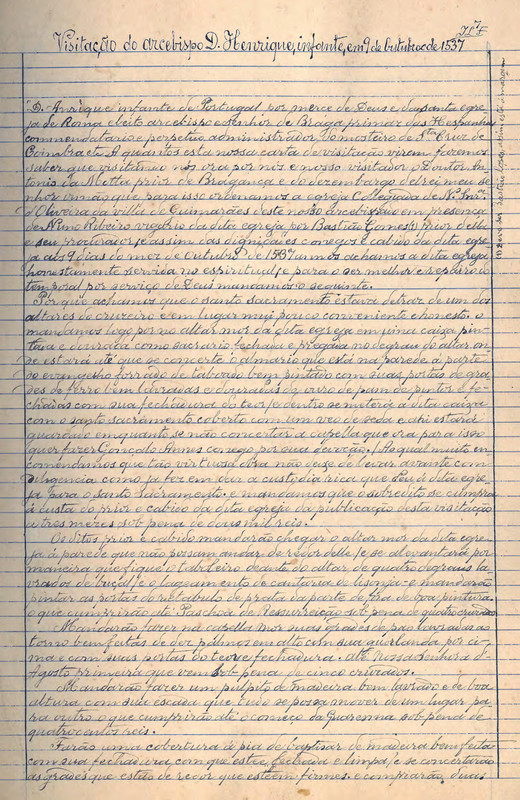 Visitação do arcebispo D. Henrique, infante, em 9 de Outubro de 1537
"D. Anrique infante de Portugal por merce de Deus e da santa egre
ja de Roma eleito arcebispo e senhor de Braga primaz das Hespanhas
commendatario e perpetuo administrador do mosteiro de Sta Cruz de
Coimbra etc. A quantos esta nossa carta de visitação virem fazemos
saber que visitamos nós ora por nós e nosso visitador o Doutor An
tonio da Motta prior de Bragança e do desembargo del rei meu se
nhor irmão que para isso ordenamos a egreja Collegiada de N. Snra
d'Oliveira da villa de Guimarães deste nosso arcebispado em presença
de Nuno Ribeiro vigario da dita egreja por Bastião Gomes (1) prior della
e seu procurador, e assim das dignidades conegos e cabido da dita egre
ja aos 9 dias do mez de Outubro de 1537 annos achamos a dita egreja
honestamente servida no espiritual, e para o ser melhor e repairo do
temporal por serviço de Deus mandamos o seguinte.
Por que achamos que o santo sacramento estava detraz de um dos
altares do cruzeiro e em lugar mui pouco conveniente e honesto. o
mandamos logo por no altar mor da dita egreja em uma caixa pin
tada e dourada como sacrario fechada e pregada no degrau do altar on
de estará até que se concerte o almario que está na parede á parte
do evangelho forrado de taboado bem pintado com suas portas de gra
des de ferro bem lavradas e douradas de ouro de pam de pintor e fe
chadas com sua fechadura do teor, e dentro se meterá a dita caixa
com o santo sacramento coberto com um veu de seda e ali estará
guardado emquanto se não concertar a capella que ora para isso
quer fazer Gonçalo Annes conego por sua devoção. Ao qual muito en
comendamos que tão virtuosa obra não deixe de levar avante com
diligencia como já fez em dar a custodia rica que deu á dita egre
ja para o Santo Sacramento. e mandamos que o sobredito se cumpra
á custa do prior e cabido da dita egreja da publicação desta visitação
a tres mezes sob pena de dous mil reis.
Os ditos prior e cabido mandarão chegar o altar mor da dita egre
ja á parede que não possam andar de redor delle, e se alevantará por
maneira que fique o tavoleiro deante do altar de quatro degraus la
vrados de boçal, e o lageamento de cantaria de lisonja e mandarão
pintar as portas do retabulo de prata da parte de fóra de boa pintura.
o que cumprirão até Paschoa de Ressurreição sob pena de quatro cruzados.
Mandarão fazer na capella mor suas grades de pao lavradas ao
torno bem feitas de dez palmos em alto com sua guirlanda por ci
ma e com suas portas do teor e fechadura. até Nossa Senhora d'
Agosto primeira que vem sob pena de cinco cruzados.
Mandarão fazer um pulpito de madeira bem lavrado e de boa
altura com sua escada que tudo se possa mover de um lugar pa
ra outro o que cumprirão até o começo da Quaresma sob pena de
quatrocentos reis.
Farão uma cobertura á pia de baptisar de madeira bem feita
com sua fechadura, com que estee fechada e limpa, e se concertarão
as grades que estão de redor que estêem firmes. e comprarão duas